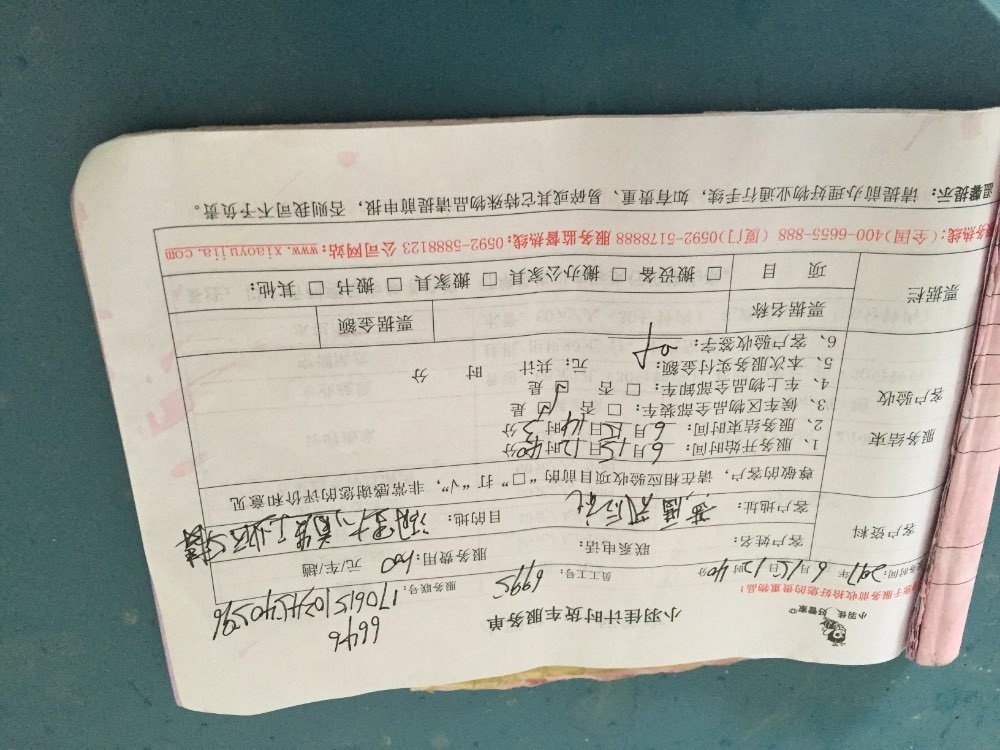 小羽佳 好管家
小羽佳计时货车服务单
6646
请于服务前收拾您的贵重物品!
员工工号: 6995
服务联号: 1706151034540596
服务时间: 2017年6月15日12时40分
客户资料
客户姓名:
联系电话:
服务费用: 100 元/车/趟
客户地址:
目的地:
尊敬的客户,请在相应验收项目前的“□”打“√”,非常感谢您的评价和意见
服务结束
客户验收
1、服务开始时间: 6月15日12时40分
2、服务结束时间: 6月15日14时3分
3、候车区物品全部装车: □ 否 ☑ 是
4、车上物品全部卸车: □ 否 ☑ 是
5、本次服务实付金额: 元; 共计 时 分
6、客户验收签字:
票据栏
票据名称
票据金额
项 目
□ 搬设备 □ 搬办公家具 □ 搬家具 □ 搬书 □ 其他:
服务热线:(全国)400-6655-888 (厦门)0592-5178888 服务监督热线:0592-5888123 公司网站:www.xiaoyujia.com
温馨提示: 请提前办理好物业通行手续,如有贵重、易碎或其它特殊物品请提前申报,否则我司不予负责。